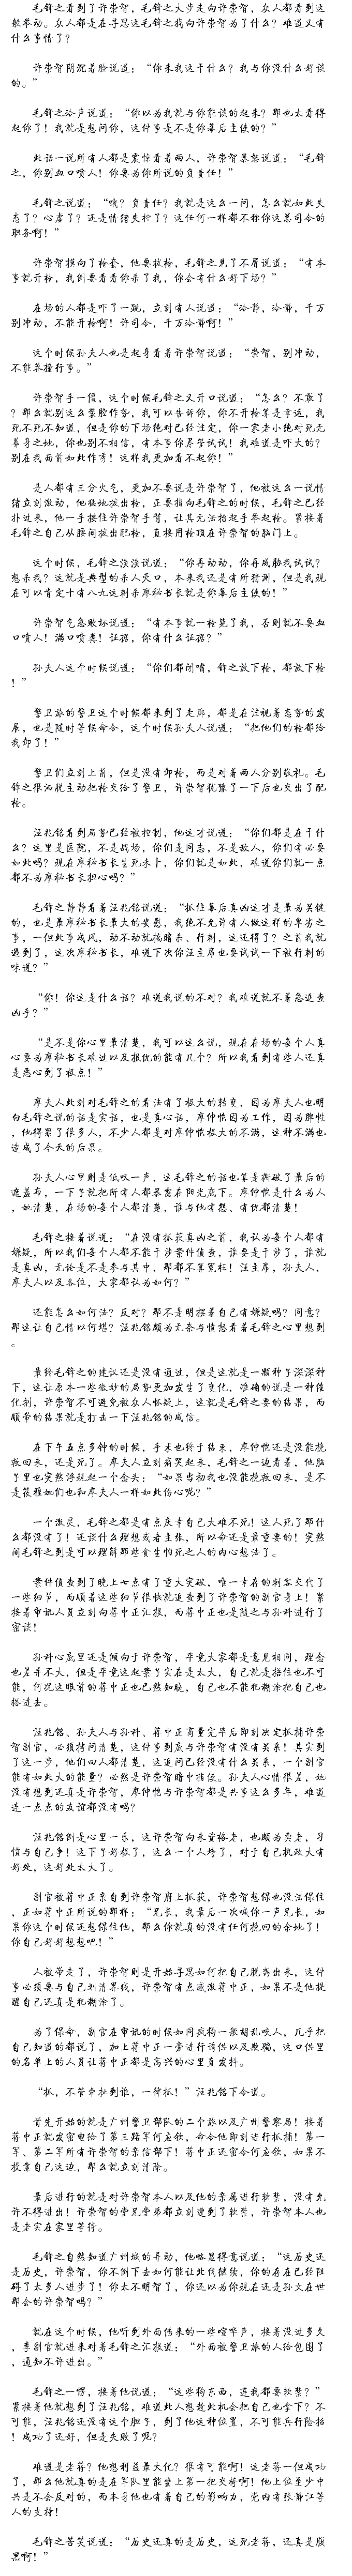 毛锋之看到了许崇智，毛锋之大步走向许崇智，众人都看到这
般举动。众人都是在寻思这毛锋之找向许崇智为了什么？难道又有
什么事情了？
许崇智阴沉着脸说道：“你来找这干什么？我与你没什么好谈
的。”
毛锋之冷声说道：“你以为我就与你能谈的起来？那也太看得
起你了！我就是想问你，这件事是不是你幕后主使的？”
此话一说所有人都是震惊看着两人，许崇智暴怒说道：“毛锋
之，你别血口喷人！你要为你所说的负责任！”
毛锋之说道：“哦？负责任？我就是这么一问，怎么就如此失
态了？心虚了？还是情绪失控了？这任何一样都不称你这总司令的
职务啊！”
许崇智摸向了枪套，他要拔枪，毛锋之见了不屑说道：“有本
事就开枪，我倒要看看你杀了我，你会有什么好下场？”
在场的人都是吓了一跳，立刻有人说道：“冷静，冷静，千万
别冲动，不能开枪啊！许司令，千万冷静啊！”
这个时候孙夫人也是起身看着许崇智说道：“崇智，别冲动，
不能莽撞行事。”
许崇智手一僵，这个时候毛锋之又开口说道：“怎么？不敢了
？那么就别这么装腔作势，我可以告诉你，你不开枪算是幸运，我
死不死不知道，但是你的下场绝对已经注定，你一家老小绝对死无
葬身之地，你也别不相信，有本事你尽管试试！我难道是吓大的？
别在我面前如此作秀！这样我更加看不起你！”
是人都有三分火气，更加不要说是许崇智了，他被这么一说情
绪立刻激动，他猛地拔出枪，正要指向毛锋之的时候，毛锋之已经
扑过来，他一手按住许崇智手臂，让其无法抬起手举起枪。紧接着
毛锋之自己从腰间拔出配枪，直接用枪顶在许崇智的脑门上。
这个时候，毛锋之淡淡说道：“你再动动，你再威胁我试试？
想杀我？这就是典型的杀人灭口，本来我还是有所猜测，但是我现
在可以肯定十有八九这刺杀廖秘书长就是你幕后主使的！”
许崇智气急败坏说道：“有本事就一枪毙了我，否则就不要血
口喷人！满口喷粪！证据，你有什么证据？”
孙夫人这个时候说道：“你们都闭嘴，锋之放下枪，都放下枪
！”
警卫旅的警卫这个时候都来到了走廊，都是在注视着态势的发
展，也是随时等候命令，这个时候孙夫人说道：“把他们的枪都给
我卸了！”
警卫们立刻上前，但是没有卸枪，而是对着两人分别敬礼。毛
锋之很洒脱主动把枪交给了警卫，许崇智犹豫了一下后也交出了配
枪。
汪兆铭看到局势已经被控制，他这才说道：“你们都是在干什
么？这里是医院，不是战场，你们是同志，不是敌人，你们有必要
如此吗？现在廖秘书长生死未卜，你们就是如此，难道你们就一点
都不为廖秘书长担心吗？”
毛锋之静静看着汪兆铭说道：“抓住幕后真凶这才是最为关键
的，也是最廖秘书长最大的安慰，我绝不允许有人做这样的卑劣之
事，一但此事成风，动不动就搞暗杀、行刺，这还得了？之前我就
遇到了，这次廖秘书长，难道下次你汪主席也要试试一下被行刺的
味道？”
“你！你这是什么话？难道我说的不对？我难道就不着急追查
凶手？”
“是不是你心里最清楚，我可以这么说，现在在场的每个人真
心要为廖秘书长难过以及报仇的能有几个？所以我看到有些人还真
是恶心到了极点！”
廖夫人此刻对毛锋之的看法有了极大的转变，因为廖夫人也明
白毛锋之说的话是实话，也是真心话，廖仲恺因为工作，因为脾性
，他得罪了很多人，不少人都是对廖仲恺极大的不满，这种不满也
造成了今天的后果。
孙夫人心里则是低叹一声，这毛锋之的话也算是撕破了最后的
遮羞布，一下子就把所有人都暴露在阳光底下。廖仲恺是什么为人
，她清楚，在场的每个人都清楚，谁与他有怨、有仇都清楚！
毛锋之接着说道：“在没有抓获真凶之前，我认为每个人都有
嫌疑，所以我们每个人都不能干涉案件侦查，谁要是干涉了，谁就
是真凶，无论是不是参与其中，那都不算冤枉！汪主席，孙夫人，
廖夫人以及各位，大家都认为如何？”
还能怎么如何法？反对？那不是明摆着自己有嫌疑吗？同意？
那这让自己情以何堪？汪兆铭颇为无奈与愤怒看着毛锋之心里想到
。
最终毛锋之的建议还是没有通过，但是这就是一颗种子深深种
下，这让原本一些微妙的局势更加发生了变化，准确的说是一种催
化剂，许崇智不可避免被众人怀疑上，这就是毛锋之要的结果，而
顺带的结果就是打击一下汪兆铭的威信。
在下午五点多钟的时候，手术也终于结束，廖仲恺还是没能挽
救回来，还是死了。廖夫人立刻痛哭起来，毛锋之一边看着，他脑
子里也突然浮现起一个念头：“如果当初我也没能挽救回来，是不
是筱雅她们也和廖夫人一样如此伤心呢？”
一个激灵，毛锋之都是有点庆幸自己大难不死！这人死了那什
么都没有了！还谈什么理想或者主张，所以命还是最重要的！突然
间毛锋之到是可以理解那些贪生怕死之人的内心想法了。
案件侦查到了晚上七点有了重大突破，唯一幸存的刺客交代了
一些细节，而顺着这些细节很快就追查到了许崇智的副官身上！紧
接着审讯人员立刻向蒋中正汇报，而蒋中正也是随之与孙科进行了
密谈！
孙科心底里还是倾向于许崇智，毕竟大家都是意见相同，理念
也差异不大，但是毕竟这起案子实在是太大，自己就是捂住也不可
能，何况这眼前的蒋中正也已然知晓，自己也不能犯糊涂把自己也
搭进去。
汪兆铭、孙夫人与孙科、蒋中正商量完毕后即刻决定抓捕许崇
智副官，必须拷问清楚，这件事到底与许崇智有没有关系！其实到
了这一步，他们四人都清楚，这追问已经没有什么关系，一个副官
能有如此大的能量？必然是许崇智暗中指使。孙夫人心情很差，她
没有想到还真是许崇智，廖仲恺与许崇智都是共事这么多年，难道
连一点点的友谊都没有吗？
汪兆铭倒是心里一乐，这许崇智向来资格老，也颇为卖老，习
惯与自己争！这下子好极了，这么一个人垮了，对于自己执政大有
好处，这好处太大了。
副官被蒋中正亲自到许崇智府上抓获，许崇智想保也没法保住
，正如蒋中正所说的那样：“兄长，我最后一次喊你一声兄长，如
果你这个时候还想保住他，那么你就真的没有任何挽回的余地了！
你自己好好想想吧！”
人被带走了，许崇智则是开始寻思如何把自己脱离出来，这件
事必须要与自己划清界线，许崇智有点感激蒋中正，如果不是他提
醒自己还真是犯糊涂了。
为了保命，副官在审讯的时候如同疯狗一般胡乱咬人，几乎把
自己知道的都说了，加上蒋中正一旁进行诱供以及欺骗，这口供里
的名单上的人员让蒋中正都是高兴的心里直发抖。
“抓，不管牵扯到谁，一律抓！”汪兆铭下令道。
首先开始的就是广州警卫部队的二个旅以及广州警察局！接着
蒋中正就发密电给了第三路军何应钦，命令他即刻进行抓捕！第一
军、第二军所有许崇智的亲信部下！蒋中正还密令何应钦，如果不
投靠自己这边，那么就立刻清除。
最后进行的就是对许崇智本人以及他的亲属进行软禁，没有允
许不得进出！许崇智的堂兄堂弟都立刻遭到了软禁，许崇智本人也
是老实在家里等待。
毛锋之自然知道广州城的异动，他略显得意说道：“这历史还
是历史，许崇智，你不倒下去如何能让北伐继续，你的存在已经阻
碍了太多人进步了！你太不明智了，你还以为你现在还是孙文在世
那会的许崇智吗？”
就在这个时候，他听到外面传来的一些喧哗声，接着没过多久
，李副官就进来对着毛锋之汇报道：“外面被警卫旅的人给包围了
，通知不许进出。”
毛锋之一愣，接着他说道：“这些狗东西，连我都要软禁？”
紧接着他就想到了汪兆铭，难道此人想趁此机会把自己也拿下？不
可能，汪兆铭还没有这个胆子，到了他这种位置，不可能兵行险招
！成功了还好，但是失败了呢？
难道是老蒋？他想利益最大化？很有可能啊！这老蒋一但成功
了，那么他就真的是在军队里能坐上第一把交椅啊！他上位至少中
共是不会反对的，而本身他也有着自己的影响力，党内有张静江等
人的支持！
毛锋之苦笑说道：“历史还真的是历史，这死老蒋，还真是腹
黑啊！”